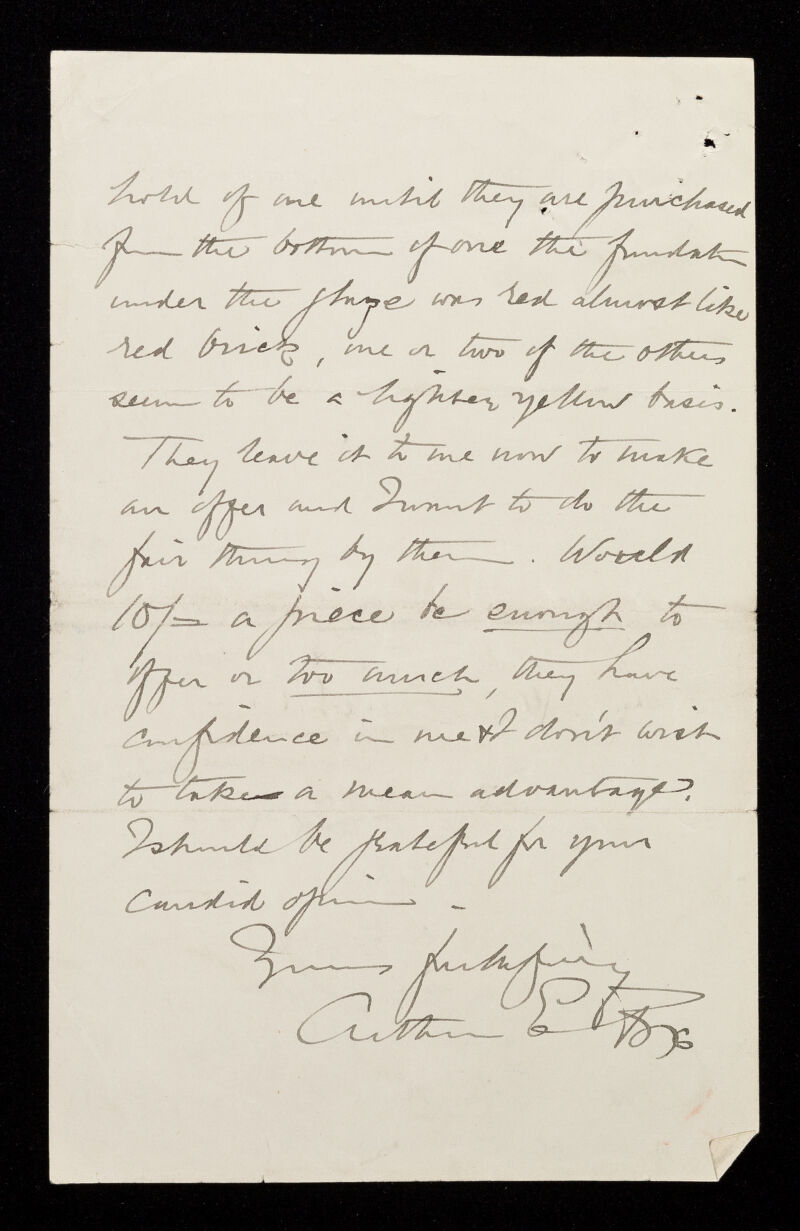 hold of one until they are purchased
from the bottom of one the foundation
under the glaze was red almost like
red brick, one or two of the others
seem to be a lighter yellow basis.
They leave it to me now to make
an offer and I want to do the
fair thing by them. Would
10/- a piece be enough to
offer or too much, they have
confidence in me & I don't wish
to take a mean advantage.
I should be grateful for your
candid opinion -
Yours faithfully
Arthur E